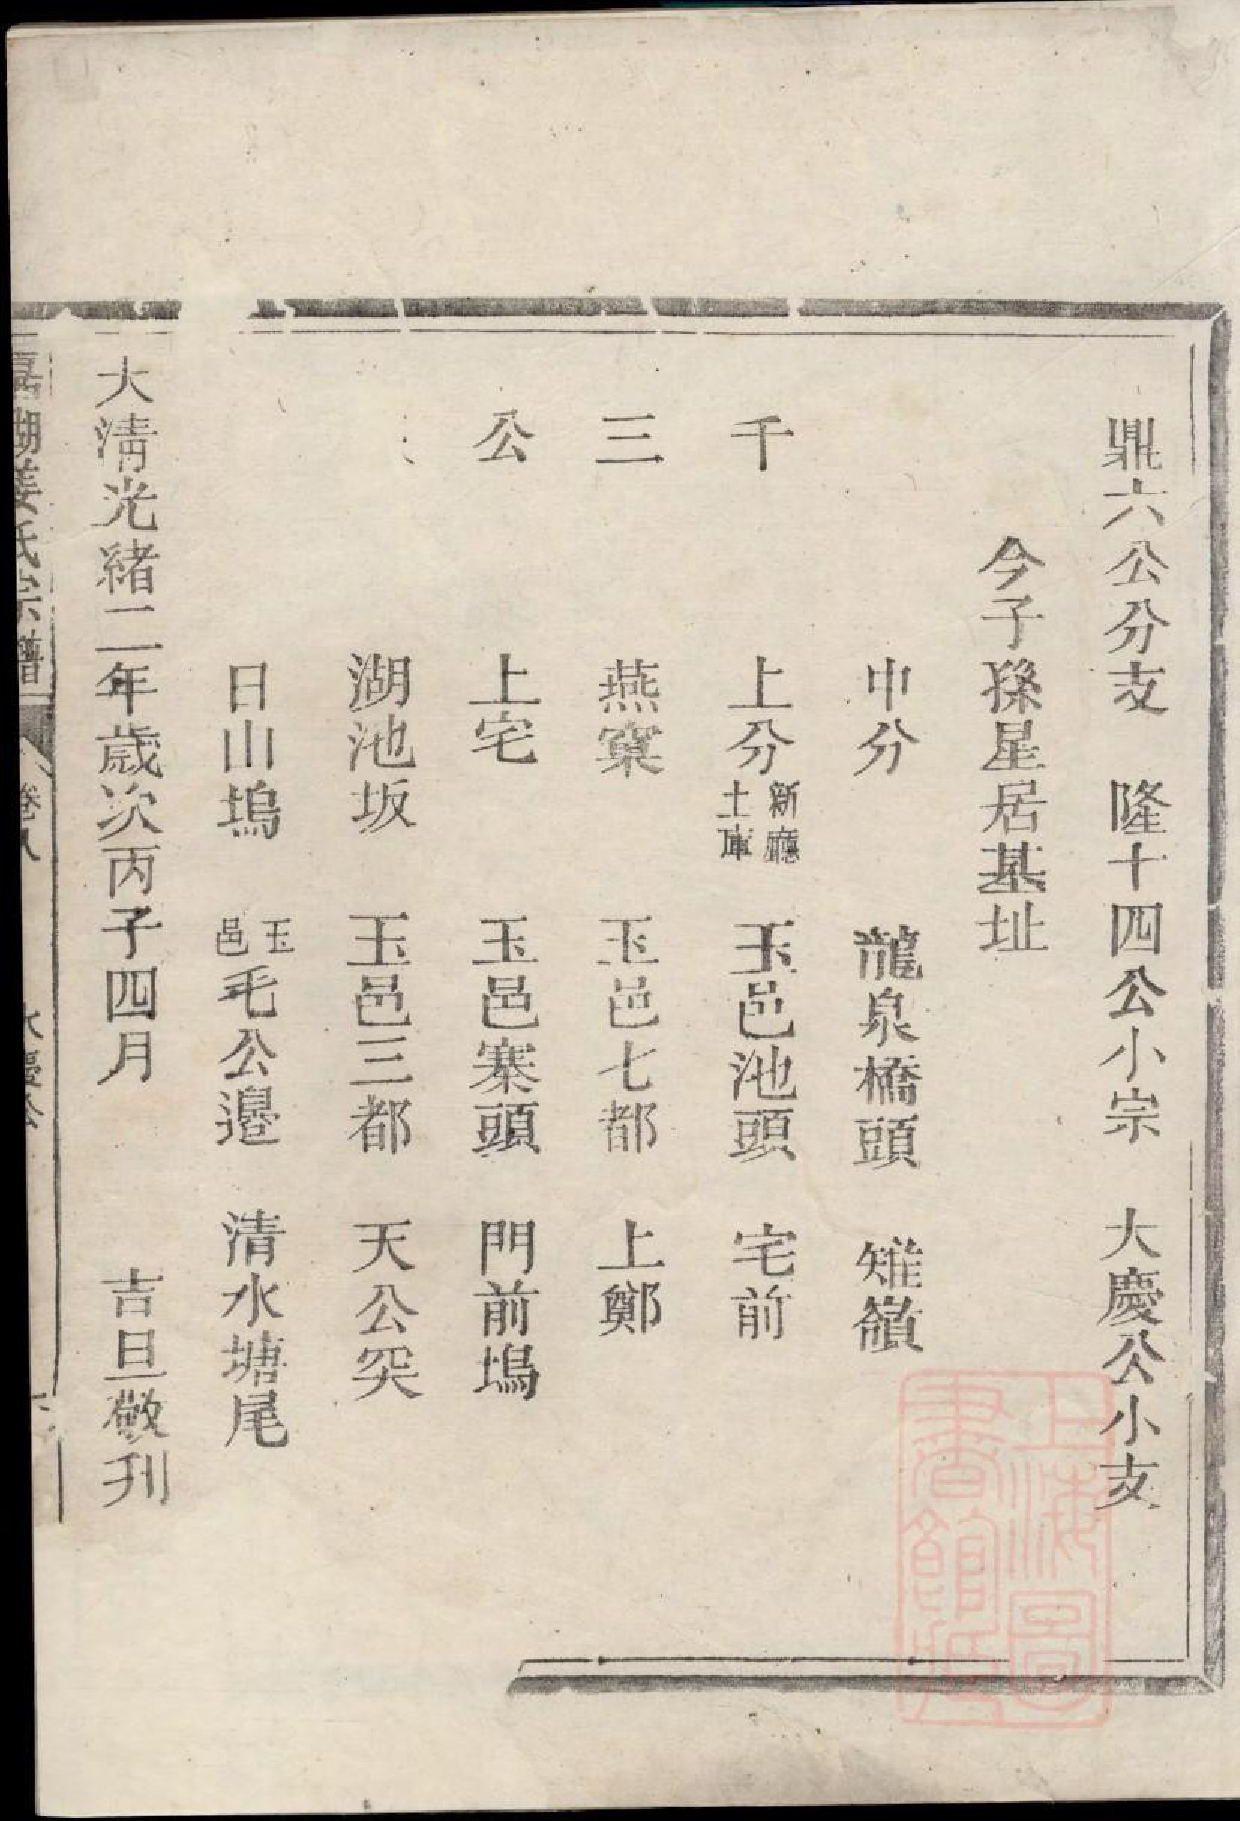 鼎六公分支　隆十四公小宗　大慶公小支
今子孫星居基址
中分　龍泉橋頭　雉嶺
千　上分新廳土庫　玉邑池頭　宅前
三　燕窠　玉邑七都　上鄭
公　上宅　玉邑寨頭　門前塢
湖池坂　玉邑三都　天公突
日山塢　玉邑毛公邊　清水塘尾
大清光緒二年歲次丙子四月　吉旦敬刊
湖姜氏宗譜　卷八　慶公
上海圖書館藏